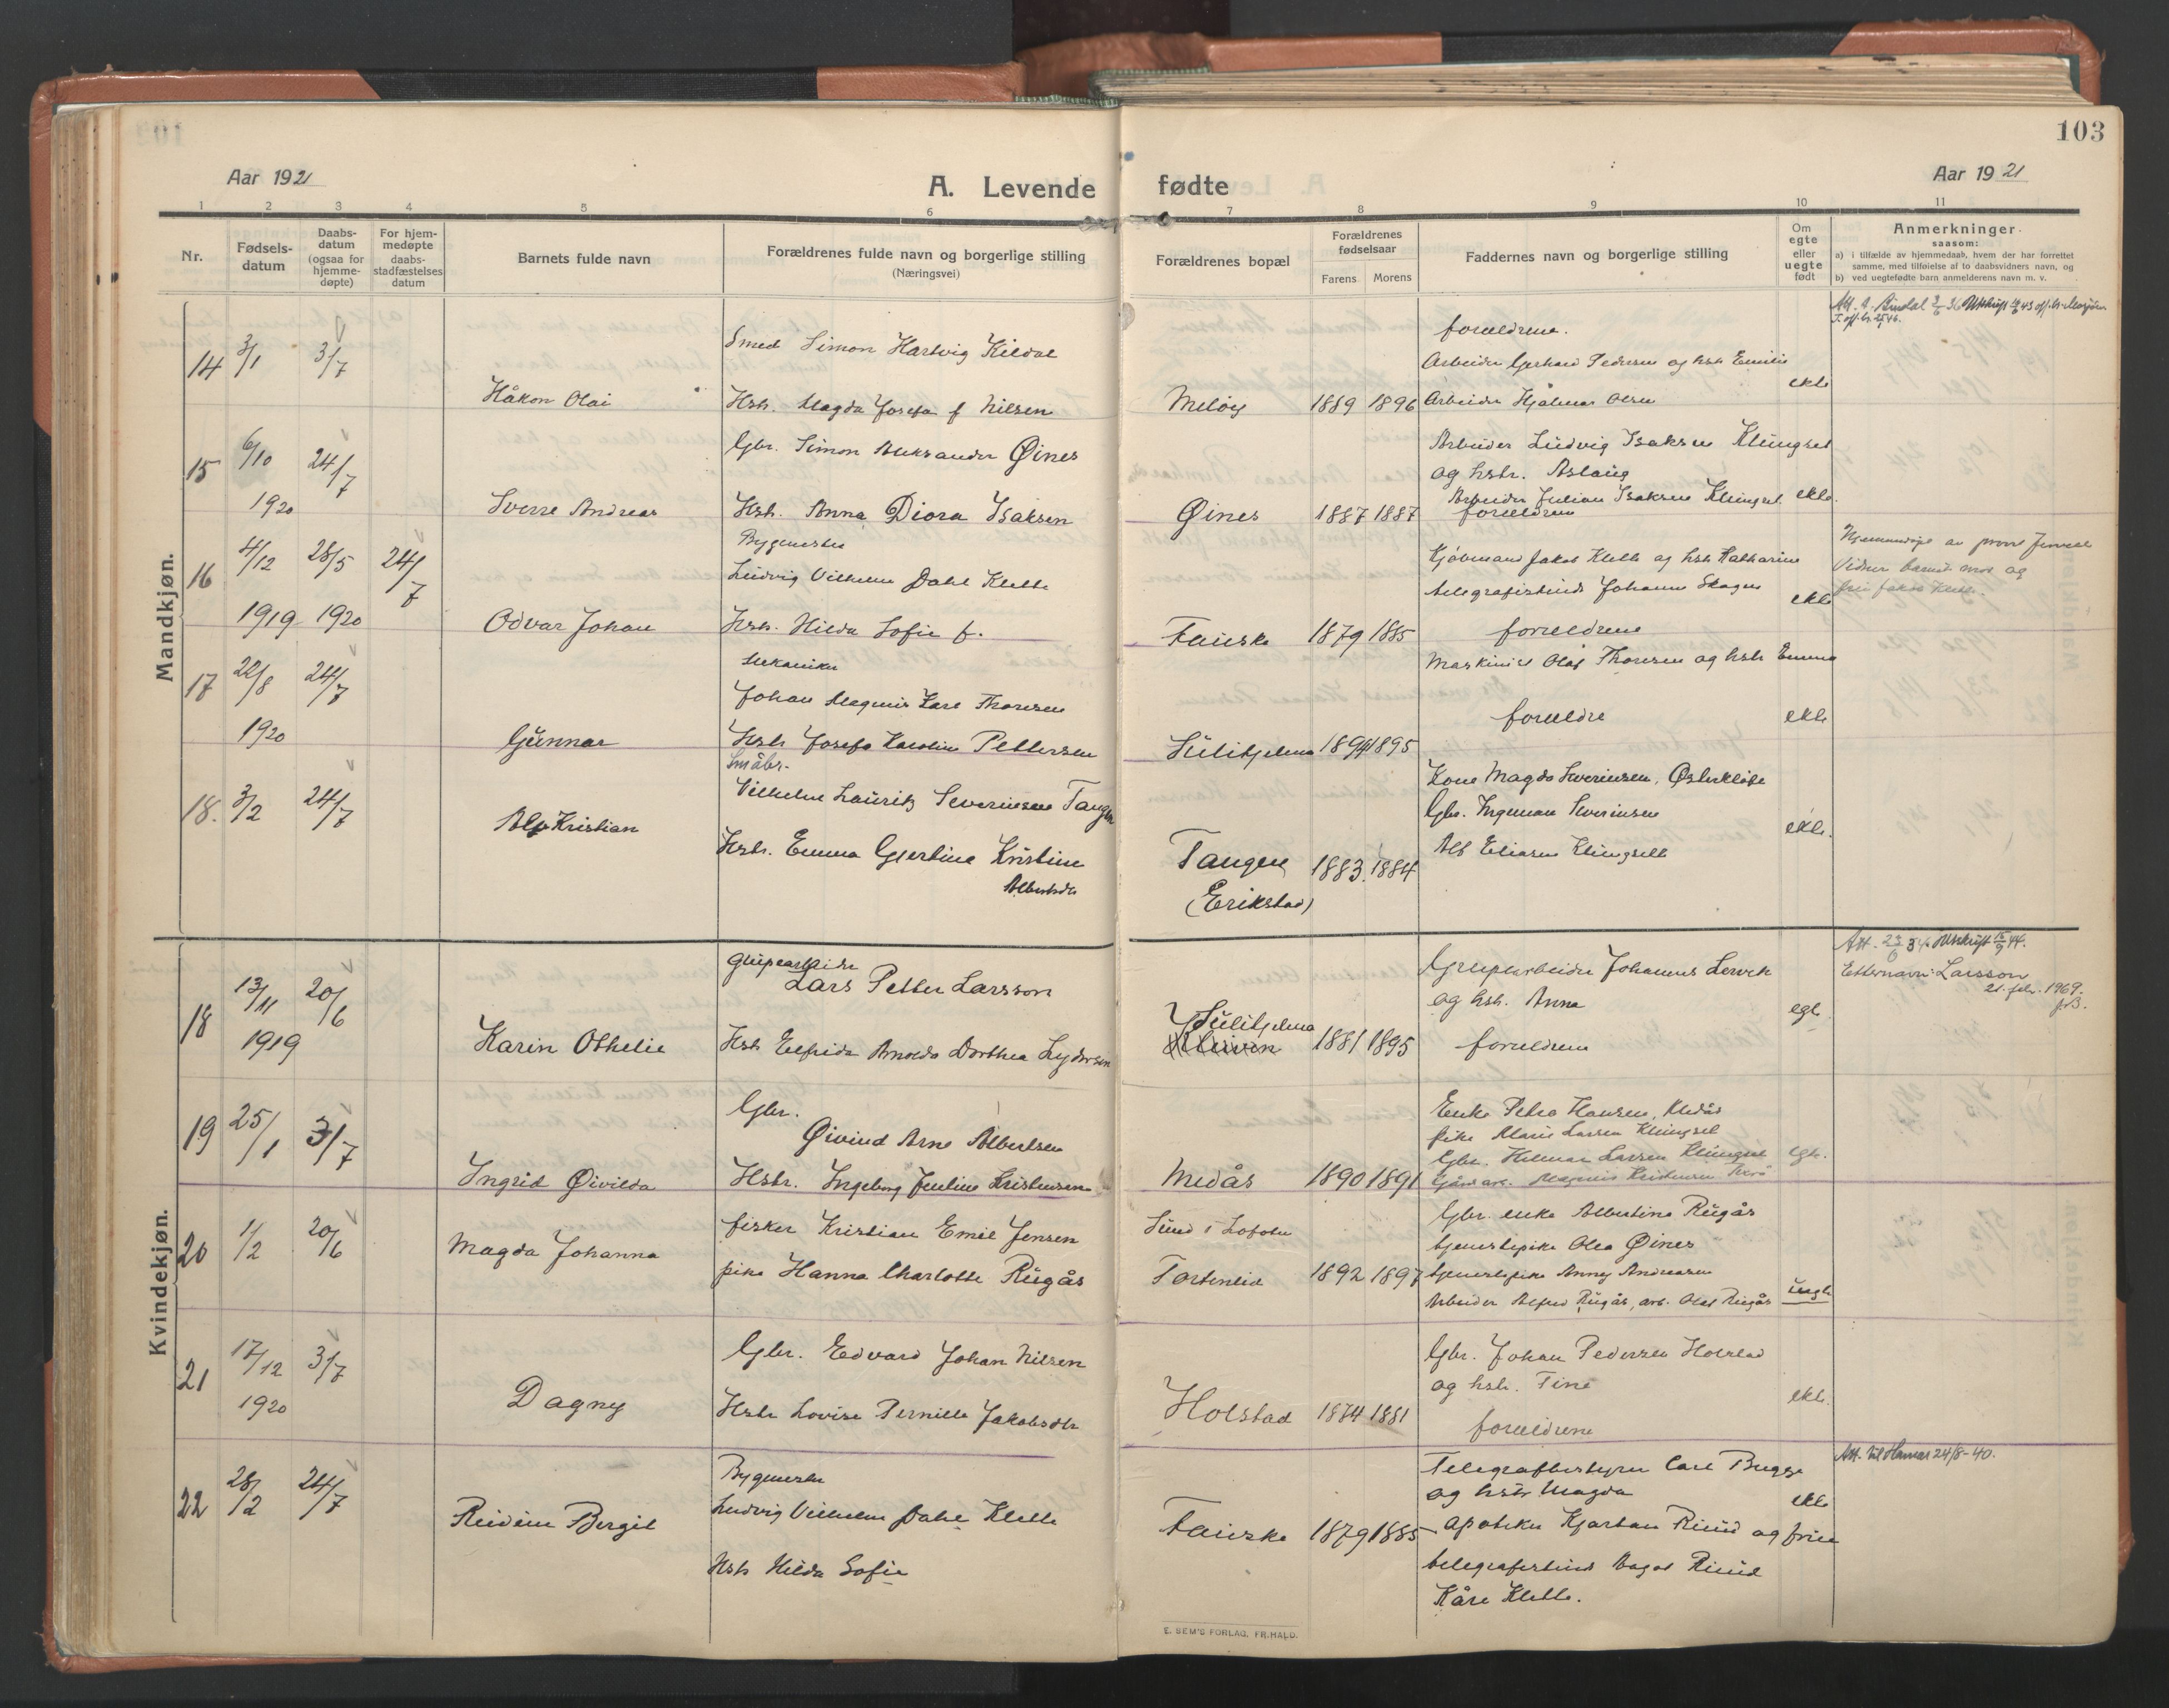 103
Aar 1921
A. Levende fødte
Aar 1921
1 2 3 4 5 6 7 8 9 10 11
Nr.
Fødsels-
datum
Daabs-
datum
(ogsaa for
hjemme-
døpte)
For hjem-
medøpte
daabs-
stadfæstelses
datum
Barnets fulde navn
Forældrenes fulde navn og borgerlige stilling
(Næringsvei)
Forældrenes bopæl
Forældrenes
fødselsaar
Farens Morens
Faddernes navn og borgerlige stilling
Om
egte
eller
uegte
født
Anmerkninger
saasom:
a) i tilfælde av hjemmedaab, hvem der har forrettet
samme, med tilføielse af to daabsvidners navn, og
b) ved uegtefødte barn anmelderens navn m. v.
Mandkjøn.
14 3/1 3/7
Håkon Olai
Smed Simon Hartvig Kildal
Hstr. Magda Josefa f Nilsen
Meløy 1889 1896
forældrene.
Arbeider Gerhard Pedersen og hstr Emilie
Arbeider Hjalmar Olsen
ekte
15 6/10 24/7
1920
Sverre Andreas
Gbr. Simon Aleksander Øines
Hstr. Anna Diora Isaksen
Øines 1887 1887
Arbeider Ludvig Isaksen Klungset
og hstr. Aslaug
Arbeider Julian Isaksen Klungset
forældrene
ekte.
16 4/12 28/5 24/7
1919 1920
Odvar Johan
Bygmester
Ludvig Vilhelm Dahl Klette
Hstr. Hilda Sofie f.
Fauske 1879 1885
Kjøbmand Jakob Klette og hstr Katharine
telegrafistinde Johanne Skagen
forældrene
ekte
Vidner barnets mor og
fru Jakob Klette.
17 22/8 24/7
1920
Gunnar
Mekaniker
Johan Magnus Kare Thoresen
Hstr Josefa Karoline Pettersen
Sulitjelma 1894 1895
Maskinist Olaf Thoresen og hstr Emma
forældre
ekte
18. 3/2 24/7
Alf Kristian
Småbr.
Vilhelm Lauritz Severinsen Tangen
Hstr. Emma Gjertine Kristine
Albertsdtr
Tangen
(Erikstad)
1883. 1884
Kone Magda Severinsen, Østerkløft
Gbr. Ingeman Severinsen
Alf Eliasen Klungsett
ekte.
Kvindekjøn.
18 13/11 20/6
1919
Karin Othelie
Grupearbeider
Lars Petter Larsson
Hstr Elfrida Arnolda Dorthea Lydersen
Sulitjelma
1881 1895
Grupearbeider Johannes Lervik
og hstr. Anna
forældrene
egte
Etternavn: Larsson
21. febr. 1969.
19 25/1 3/7
Ingrid Øivilda
Gbr.
Øivind Arne Albertsen
Hstr. Ingeborg Pauline Kristensen
Medås 1890 1891
Enke Petra Hansen, Medås
pike Marie Larsen Klungset
Gbr. Hilmar Larsen Klungset
egte.
20 1/2 20/6
Magda Johanna
fisker Kristian Emil Jensen
pike Hanna Charlotte Rugås
Sund i Lofoten
Tortenlid 1892 1897
Gbr. enke Albertine Rugås
tjenestepike Olea Øines
tjenestepike Anny Andreasen
Arbeider Alfred Rugås, arb. Olaf Rugås
uegte
21 17/12 3/7
1920
Dagny
Gbr. Edvard Johan Nilsen
Hstr Lovise Pernille Jakobsdtr
Holstad 1874 1881
Gbr. Johan Pedersen Holstad
og hstr. Tine
forældrene
ekte.
22 28/2 24/7
Reidun Bergit
Bygmester
Ludvig Vilhelm Dahl Klette
Hstr Hilda Sofie
Fauske 1879 1885
Telegrafbestyrer Carl Bugge
og hstr Magda
Apoteker Kjartan Ruud og frue
telegrafistinde Dagot Ruud
Kåre Klette.
ekte
Att. til Hamar 24/8-40.
E. SEM'S FORLAG, FR.HALD.